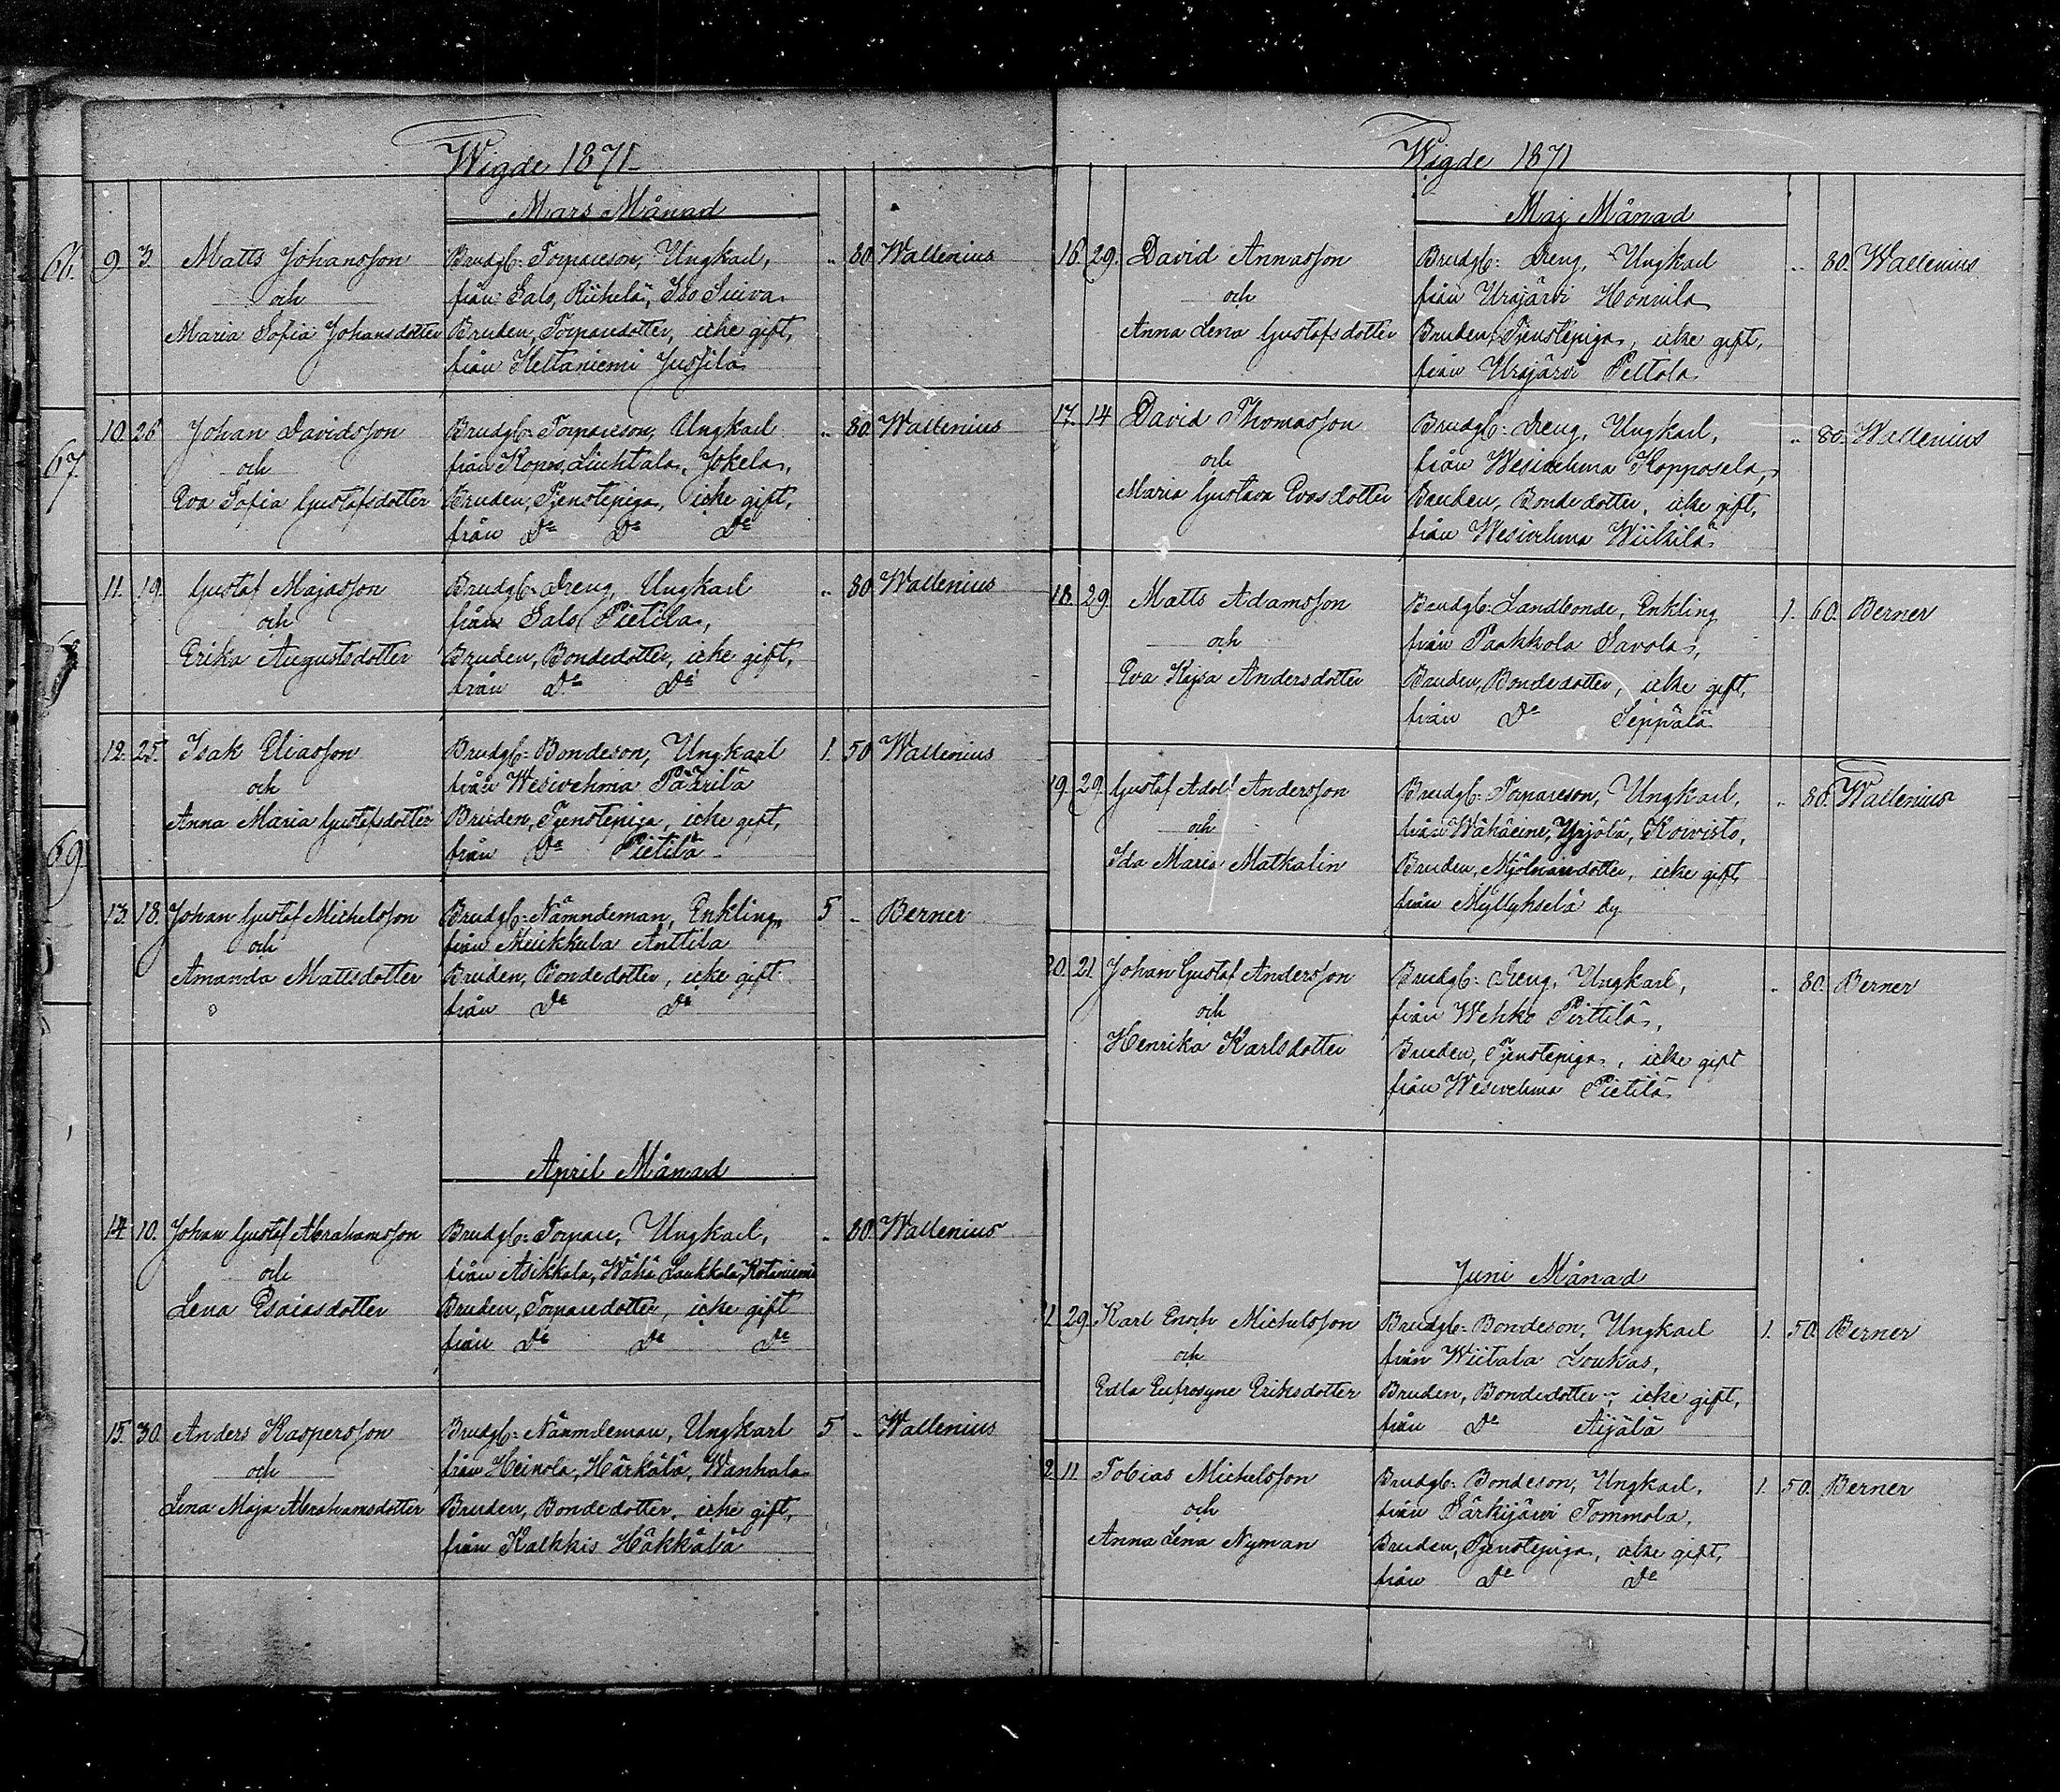 Wigde 1871
Mars Månad
66.
9. 3. Matts Johansson Brudg: Torpareson, Ungkarl, .. 80. Wallenius
och från Salo, Riihelä, Iso Suiva
Maria Sofia Johansdotter Bruden, Torparedotter, icke gift,
från Keltaniemi Jussila
67.
10. 26 Johan Davidsson Brudg: Torpareson, Ungkarl .. 80. Wallenius
och från Kopos, Liuhtala, Jokela,
Eva Sofia Gustafsdotter Bruden, Tjenstepiga, icke gift,
från Do Do Do
11. 19. Gustaf Majasson Brudg: Dreng, Ungkarl .. 80. Wallenius
och från Salo, Pietila,
Erika Augustsdotter Bruden, Bondedotter, icke gift,
från Do Do
12. 25. Isak Eliasson Brudg: Bondeson, Ungkarl 1. 50. Wallenius
och från Wesivehma Päärilä
69.
Anna Maria Gustafsdotter Bruden, Tjenstepiga, icke gift,
från Do Pietilä
13. 18. Johan Gustaf Michelsson Brudg: Nämndeman, Enkling, 5 .. Berner
och från Muikkula Anttila
Amanda Mattsdotter Bruden, Bondedotter, icke gift
från Do Do
April Månad
14. 10. Johan Gustaf Abrahamsson Brudg: Torpare, Ungkarl, .. 80. Wallenius
och från Asikkala, Wähä Laukkala, Kotaniemi
Lena Esaiasdotter Bruden, Torparedotter, icke gift
från Do Do Do
15. 30. Anders Kaspersson Brudg: Nämndeman, Ungkarl 5. .. Wallenius
och från Heinola, Härkälä, Wanhala
Lena Maja Abrahamsdotter Bruden, Bondedotter, icke gift,
från Kalkkis Häkkälä
Wigde 1871
Maj Månad
16. 29. David Annasson Brudg: Dreng, Ungkarl .. 80. Wallenius
och från Urajärvi Honnila
Anna Lena Gustafsdotter Bruden, Tjenstepiga, icke gift,
från Urajärvi Peltola
17. 14 David Thomasson Brudg: Dreng, Ungkarl, .. 80. Wallenius
och från Wesivehma Kopposela,
Maria Gustava Evasdotter Bruden, Bondedotter, icke gift,
från Wesivehma Wiikilä
18. 29. Matts Adamsson Brudg: Landbonde, Enkling 1. 60. Berner
och från Paakkola Savola,
Eva Kajsa Andersdotter Bruden, Bondedotter, icke gift,
från Do Seppälä
19. 29. Gustaf Adolf Andersson Brudg: Torpareson, Ungkarl, .. 80. Wallenius
och från Wähäeine, Yrjölä, Koivisto,
Ida Maria Matkalin Bruden, Mjölnaredotter, icke gift,
från Myllykselä by
20. 21 Johan Gustaf Andersson Brudg: Dreng, Ungkarl, .. 80. Berner
och från Wehko Pirttilä,
Henrika Karlsdotter Bruden, Tjenstepiga, icke gift
från Wesivehma Pietilä
Juni Månad
29. Karl Enoch Michelsson Brudg: Bondeson, Ungkarl 1. 50. Berner
och från Wiitala Loukas,
Edla Eufrosyne Eriksdotter Bruden, Bondedotter, icke gift,
från Do Äijälä
11 Tobias Michelsson Brudg: Bondeson, Ungkarl, 1. 50. Berner
och från Särkijärvi Tommola,
Anna Lena Nyman Bruden, Tjenstepiga, icke gift,
från Do Do